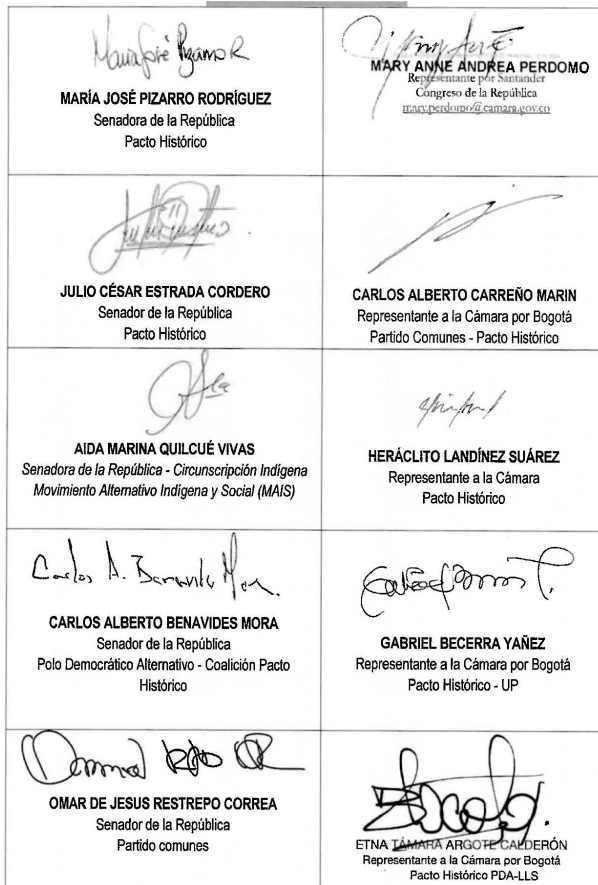 María José Pizarro R
MARÍA JOSÉ PIZARRO RODRÍGUEZ
Senadora de la República
Pacto Histórico
MARY ANNE ANDREA PERDOMO
Representante por Santander
Congreso de la República
mary.perdomo@camara.gov.co
JULIO CÉSAR ESTRADA CORDERO
Senador de la República
Pacto Histórico
CARLOS ALBERTO CARREÑO MARIN
Representante a la Cámara por Bogotá
Partido Comunes - Pacto Histórico
AIDA MARINA QUILCUÉ VIVAS
Senadora de la República - Circunscripción Indígena
Movimiento Alternativo Indígena y Social (MAIS)
HERÁCLITO LANDÍNEZ SUÁREZ
Representante a la Cámara
Pacto Histórico
Carlos A. Benavides Mora
CARLOS ALBERTO BENAVIDES MORA
Senador de la República
Polo Democrático Alternativo - Coalición Pacto
Histórico
GABRIEL BECERRA YAÑEZ
Representante a la Cámara por Bogotá
Pacto Histórico - UP
OMAR DE JESUS RESTREPO CORREA
Senador de la República
Partido comunes
ETNA TÁMARA ARGOTE CALDERÓN
Representante a la Cámara por Bogotá
Pacto Histórico PDA-LLS